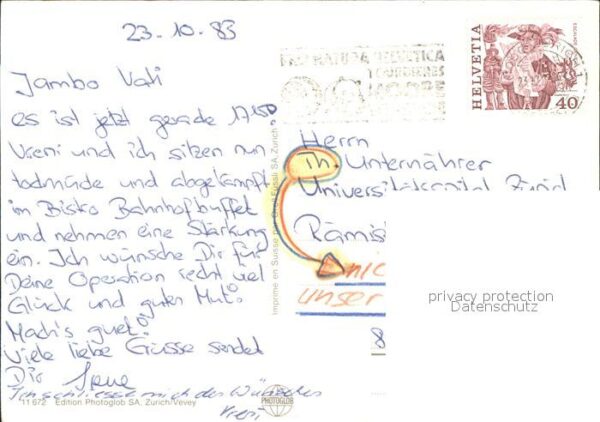 23.10.83
Jambo Vati
es ist jetzt gerade 17.50.
Vreni und ich sitzen nun
todmüde und abgekämpft
im Bahnhofbuffet
und nehmen eine Stärkung
ein. Ich wünsche Dir für
Deine Operation recht viel
Glück und guten Mut!
Mach's guet!
Viele liebe Grüsse sendet
Dir Irene
Ich schliesse mich den Wünschen
Vreni
11 672 Edition Photoglob SA, Zürich/Vevey
PHOTOGLOB
Imprimé en Suisse par Orell Füssli SA, Zurich
PRO NATURA HELVETICA
HELVETIA
ESCALADE
40
Herrn
Th. Unternährer
Universitätsspital Zürich
Rämis
nic
unser
8
privacy protection
Datenschutz